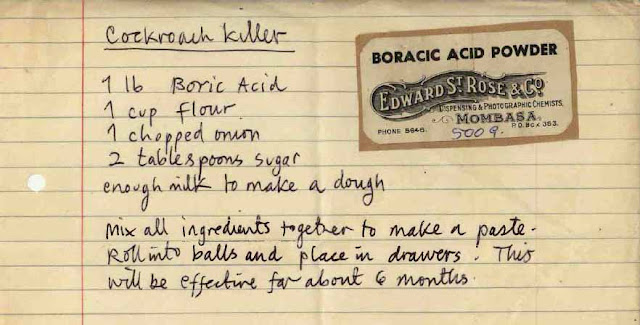 Cockroach killer
1 lb Boric Acid
1 cup flour
1 chopped onion
2 tablespoons sugar
enough milk to make a dough
Mix all ingredients together to make a paste.
Roll into balls and place in drawers. This
will be effective for about 6 months.
BORACIC ACID POWDER
EDWARD ST. ROSE & CO.
DISPENSING & PHOTOGRAPHIC CHEMISTS,
MOMBASA.
PHONE 5646. 500 g. P.O. BOX 383.